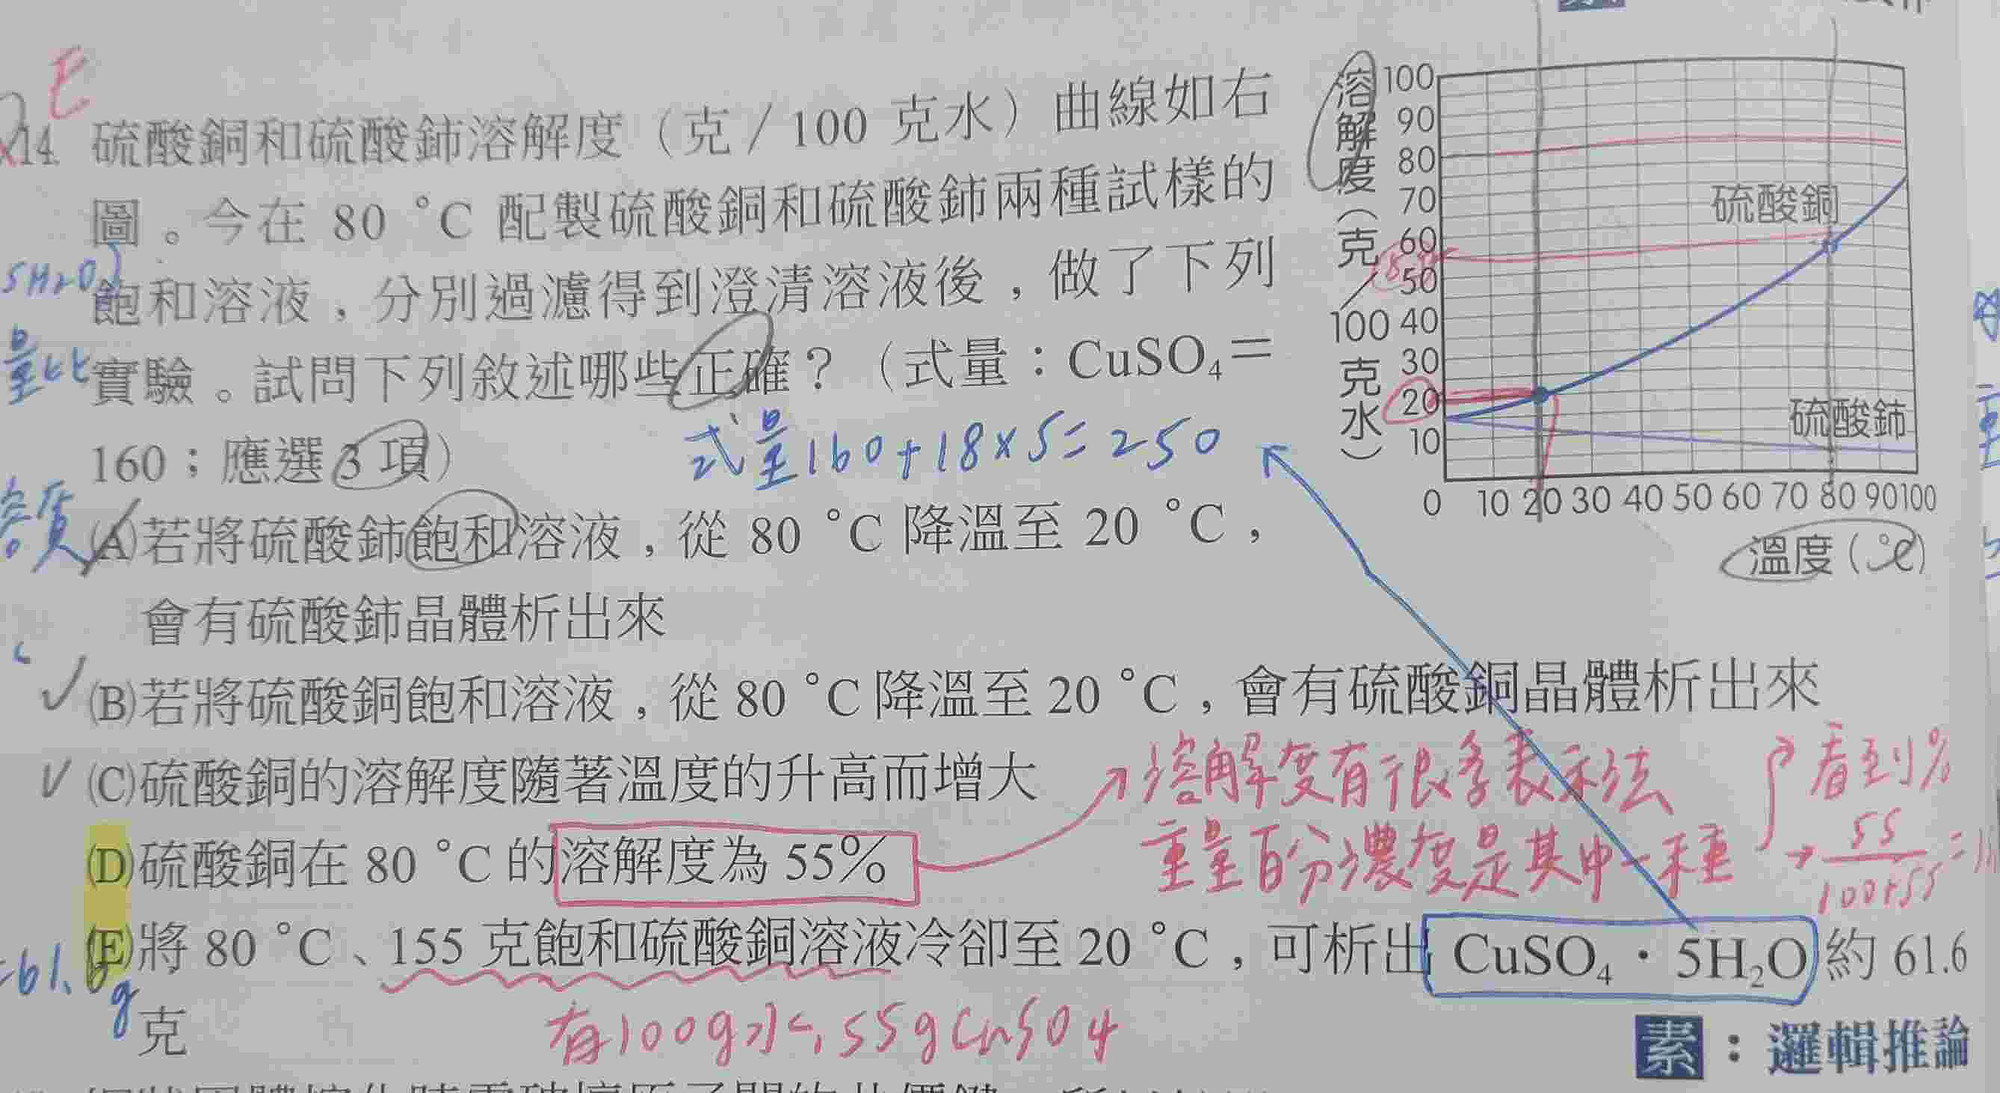 E
14. 硫酸銅和硫酸鈰溶解度（克／100 克水）曲線如右
圖。今在 80 °C 配製硫酸銅和硫酸鈰兩種試樣的
5H₂O)
飽和溶液，分別過濾得到澄清溶液後，做了下列
量比
實驗。試問下列敘述哪些正確？（式量：CuSO₄＝
式量160+18×5=250
160；應選 3 項）
溶質
(A)若將硫酸鈰飽和溶液，從 80 °C 降溫至 20 °C，
會有硫酸鈰晶體析出來
(B)若將硫酸銅飽和溶液，從 80 °C 降溫至 20 °C，會有硫酸銅晶體析出來
(C)硫酸銅的溶解度隨著溫度的升高而增大
溶解度有很多表示法
看到%
重量百分濃度是其中一種
→ 55/100+55 =
(D)硫酸銅在 80 °C 的溶解度為 55%
(E)將 80 °C、155 克飽和硫酸銅溶液冷卻至 20 °C，可析出 CuSO₄．5H₂O 約 61.6
=61.6g
克
有100g水、55gCuSO4
素：邏輯推論
溶解度（克／100克水）
100
90
80
70
60
50
40
30
20
10
硫酸銅
硫酸鈰
0 10 20 30 40 50 60 70 80 90 100
溫度(℃)